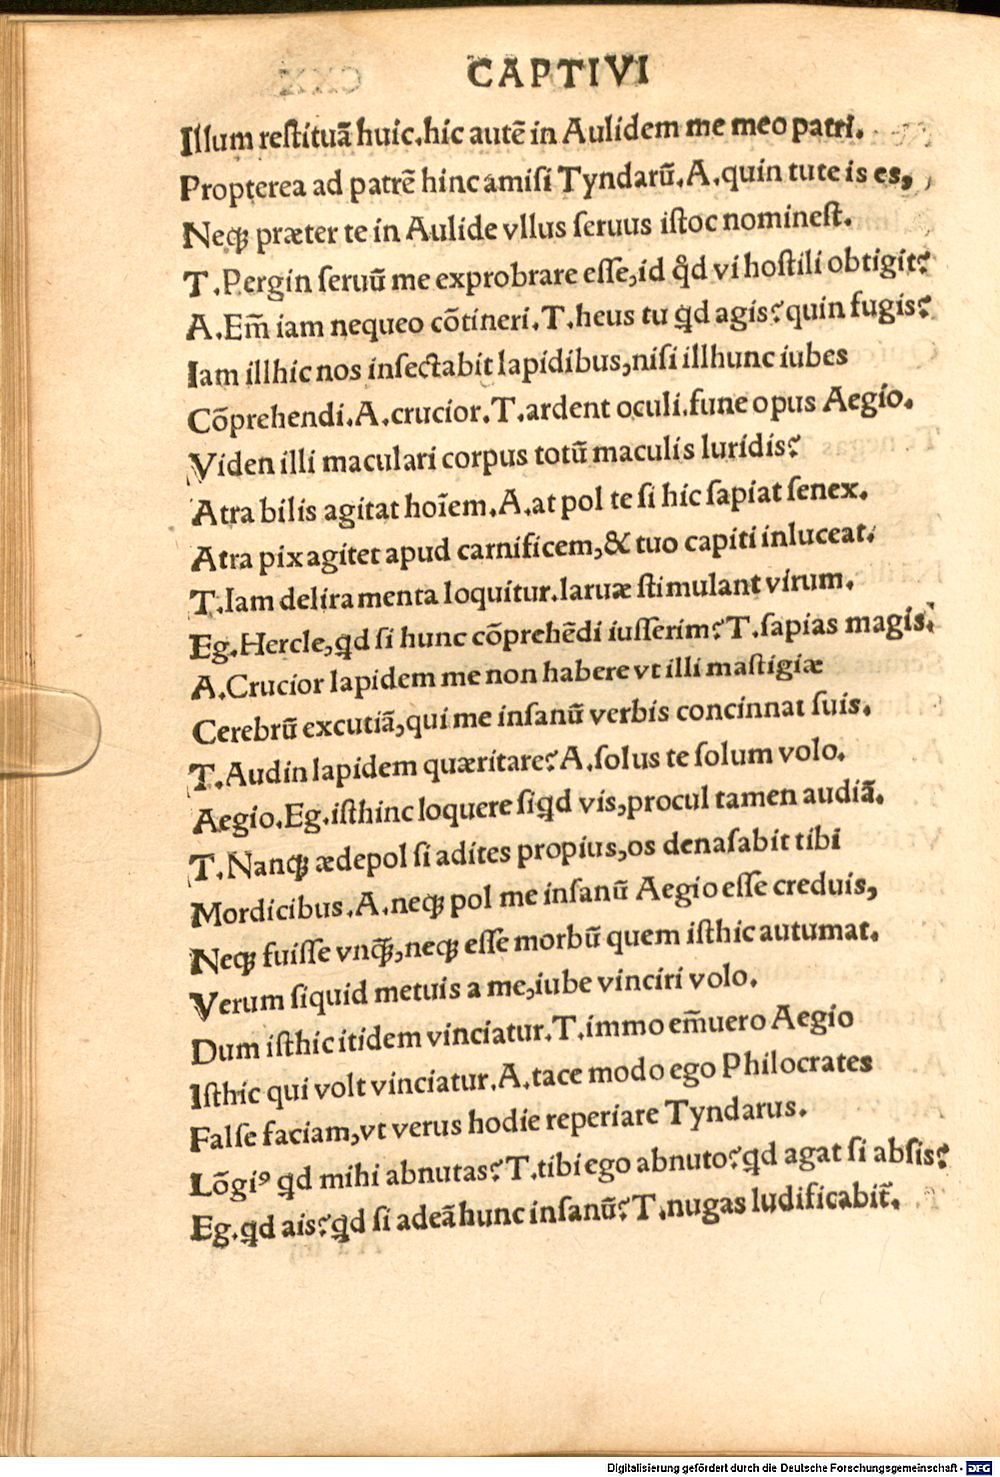 CAPTIVI
Illum reſtituã huic.hic autẽ in Aulidem me meo patri.
Propterea ad patrẽ hinc amiſi Tyndarũ.A.quin tute is es,
Neqꝫ præter te in Aulide vllus ſeruus iſtoc nomineſt.
T.Pergin ſeruũ me exprobrare eſſe,id qd̉ vi hoſtili obtigit?
A.Em̃ iam nequeo cõtineri.T.heus tu qd agis?quin fugis?
Iam illhic nos inſectabit lapidibus,niſi illhunc iubes
Cõprehendi.A.crucior.T.ardent oculi.fune opus Aegio.
Viden illi maculari corpus totũ maculis luridis?
Atra bilis agitat hoĩem.A.at pol te ſi hic ſapiat ſenex.
Atra pix agitet apud carnificem,& tuo capiti inluceat.
T.Iam deliramenta loquitur.laruæ ſtimulant virum.
Eg.Hercle,qd ſi hunc cõprehẽdi iuſſerim?T.ſapias magis.
A.Crucior lapidem me non habere vt illi maſtigiæ
Cerebrũ excutiã,qui me inſanũ verbis concinnat ſuis.
T.Audin lapidem quæritare?A.ſolus te ſolum volo.
Aegio.Eg.iſthinc loquere ſiqd vis,procul tamen audiã.
T.Nanqꝫ ædepol ſi adites propius,os denaſabit tibi
Mordicibus.A.neqꝫ pol me inſanũ Aegio eſſe creduis,
Neqꝫ fuiſſe vnq̃ꝫ,neqꝫ eſſe morbũ quem iſthic autumat.
Verum ſiquid metuis a me,iube vinciri volo.
Dum iſthic itidem vinciatur.T.immo em̃uero Aegio
Iſthic qui volt vinciatur.A.tace modo ego Philocrates
Falſe faciam,vt verus hodie reperiare Tyndarus.
Lõgiꝰ qd mihi abnutas?T.tibi ego abnuto?qd agat ſi abſis?
Eg.qd ais?qd ſi adeã hunc inſanũ?T.nugas ludificabit̃.
Digitalisierung gefördert durch die Deutsche Forschungsgemeinschaft - DFG